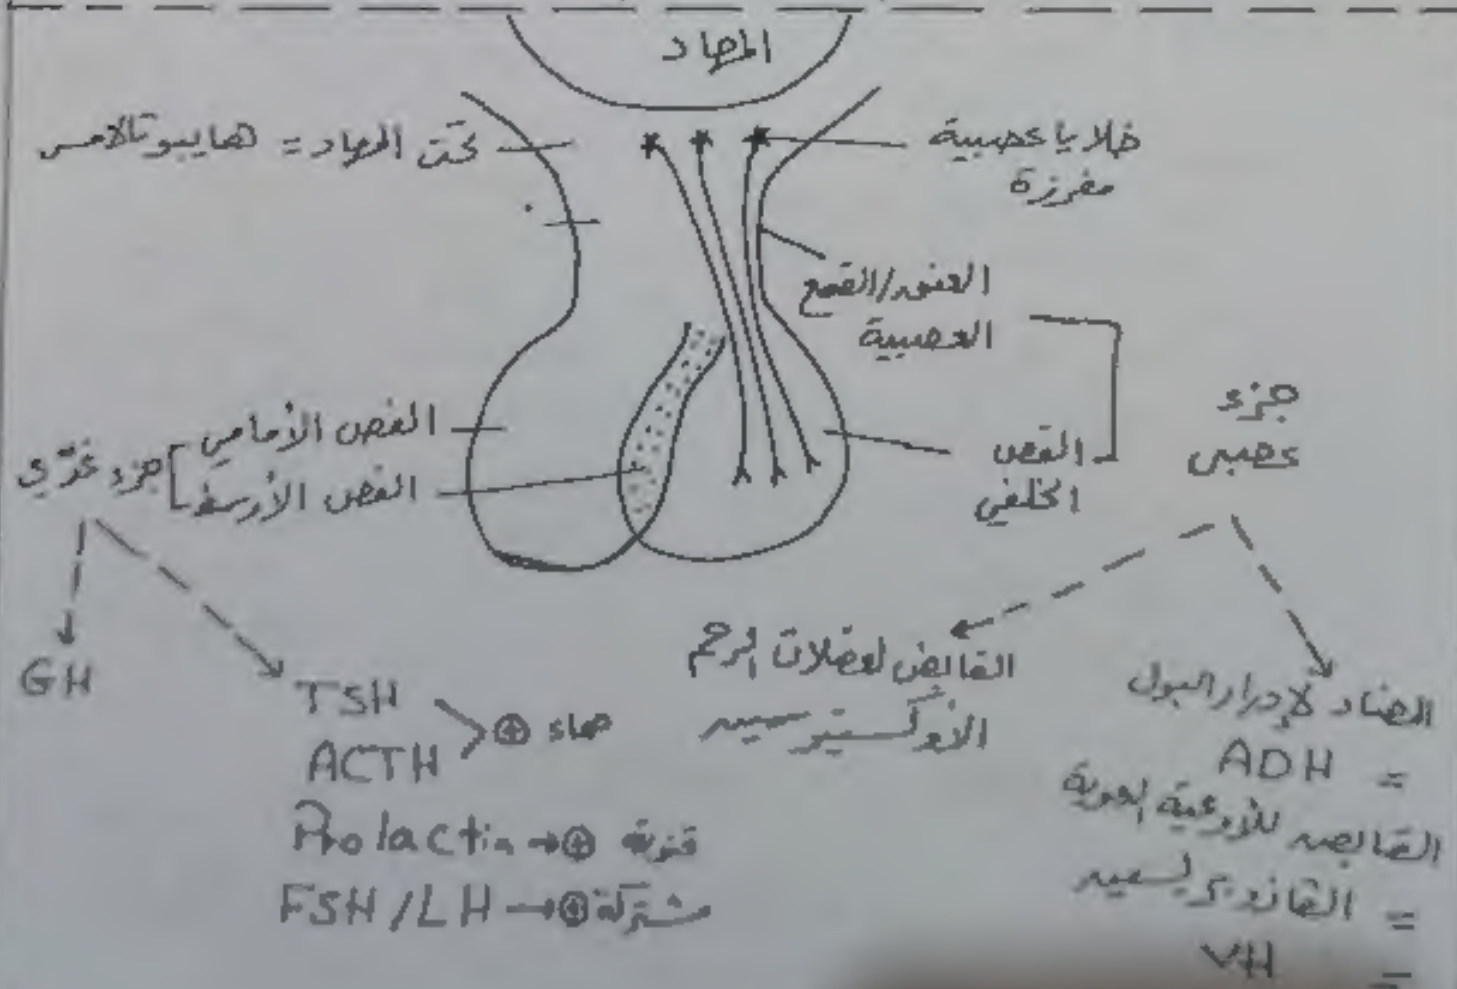 المهاد
تحت المهاد = هايبوثالامس
خلايا عصبية
مفرزة
العنق/القمع
العصبية
الفص الأمامي
الفص الأوسط
جزء غدّي
الفص
الخلفي
جزء
عصبي
GH
TSH
ACTH
⊕ صماء
Prolactin → ⊕ قنوية
FSH/LH → ⊕ مشتركة
القابض لعضلات الرحم
الأوكسيتوسين
المضاد لإدرار البول
= ADH
القابض للأوعية الدموية
= الفازوبريسين
= VH